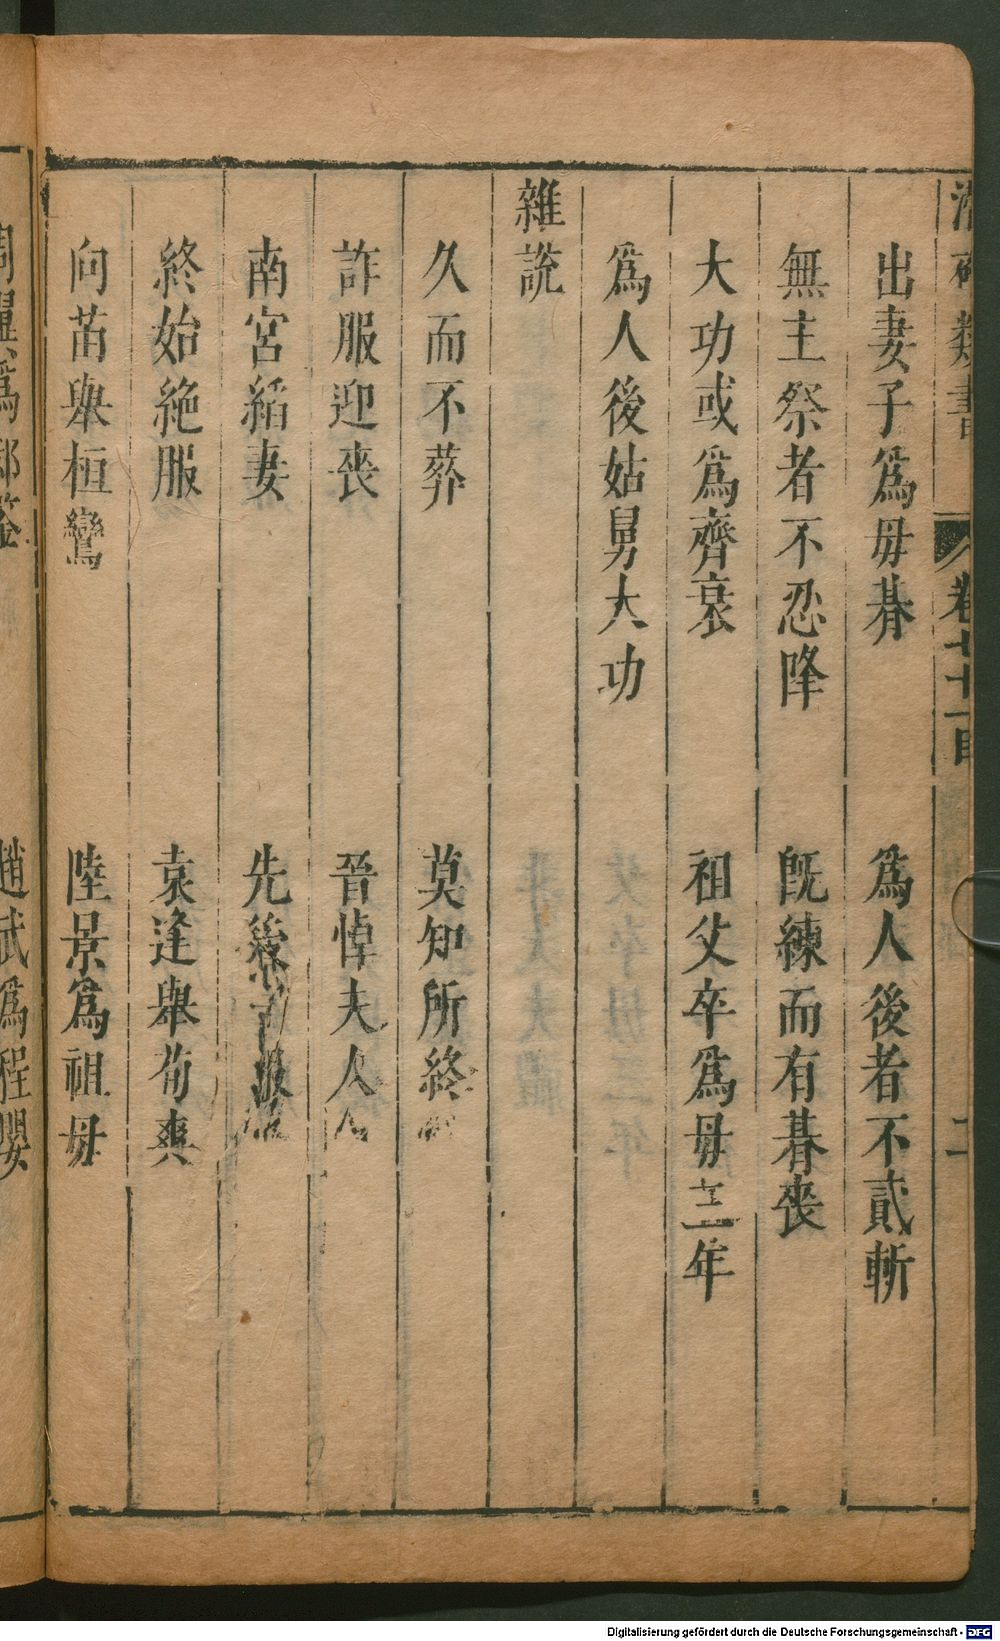 類書 卷七十一目 二
出妻子為母朞 為人後者不貳斬
無主祭者不忍降 旣練而有朞喪
大功或為齊衰 祖父卒為母三年
為人後姑舅大功
雜説
久而不葬 莫知所終
詐服迎喪 晉悼夫人
南宮縚妻 先後子服
終始絶服 袁逢舉荀爽
向苗舉桓鸞 陸景為祖母
趙武為程嬰
Digitalisierung gefördert durch die Deutsche Forschungsgemeinschaft - DFG